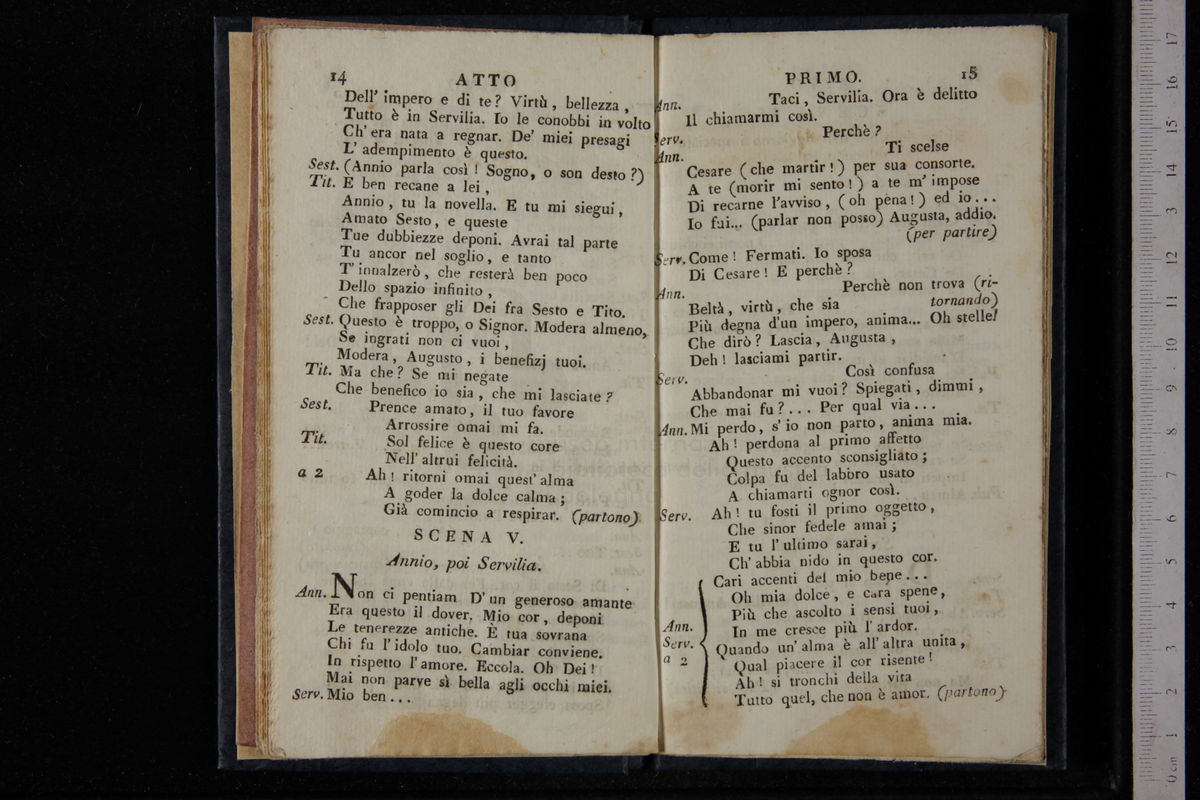 14 ATTO
Dell' impero e di te? Virtù, bellezza,
Tutto è in Servilia. Io le conobbi in volto
Ch' era nata a regnar. De' miei presagi
L' adempimento è questo.
Sest. (Annio parla così! Sogno, o son desto?)
Tit. E ben recane a lei,
Annio, tu la novella. E tu mi siegui,
Amato Sesto, e queste
Tue dubbiezze deponi. Avrai tal parte
Tu ancor nel soglio, e tanto
T' innalzerò, che resterà ben poco
Dello spazio infinito,
Che frapposer gli Dei fra Sesto e Tito.
Sest. Questo è troppo, o Signor. Modera almeno,
Se ingrati non ci vuoi,
Modera, Augusto, i benefizj tuoi.
Tit. Ma che? Se mi negate
Che benefico io sia, che mi lasciate?
Sest. Prence amato, il tuo favore
Arrossire omai mi fa.
Tit. Sol felice è questo core
Nell' altrui felicità.
a 2 Ah! ritorni omai quest' alma
A goder la dolce calma;
Già comincio a respirar. (partono)
SCENA V.
Annio, poi Servilia.
Ann. Non ci pentiam D' un generoso amante
Era questo il dover. Mio cor, deponi
Le tenerezze antiche. È tua sovrana
Chi fu l' idolo tuo. Cambiar conviene.
In rispetto l' amore. Eccola. Oh Dei!
Mai non parve sì bella agli occhi miei.
Serv. Mio ben...
PRIMO. 15
Ann. Taci, Servilia. Ora è delitto
Il chiamarmi così.
Serv. Perchè?
Ann. Ti scelse
Cesare (che martir!) per sua consorte.
A te (morir mi sento!) a te m' impose
Di recarne l'avviso, (oh pena!) ed io...
Io fui... (parlar non posso) Augusta, addio.
(per partire)
Serv. Come! Fermati. Io sposa
Di Cesare! E perchè?
Ann. Perchè non trova (ri-
Beltà, virtù, che sia tornando)
Più degna d'un impero, anima... Oh stelle!
Che dirò? Lascia, Augusta,
Deh! lasciami partir.
Serv. Così confusa
Abbandonar mi vuoi? Spiegati, dimmi,
Che mai fu?... Per qual via...
Ann. Mi perdo, s' io non parto, anima mia.
Ah! perdona al primo affetto
Questo accento sconsigliato;
Colpa fu del labbro usato
A chiamarti ognor così.
Serv. Ah! tu fosti il primo oggetto,
Che sinor fedele amai;
E tu l' ultimo sarai,
Ch' abbia nido in questo cor.
Cari accenti del mio bene...
Oh mia dolce, e cara spene,
Più che ascolto i sensi tuoi,
Ann. In me cresce più l' ardor.
Serv. Quando un' alma è all' altra unita,
a 2 Qual piacere il cor risente!
Ah! si tronchi della vita
Tutto quel, che non è amor. (partono)
0 cm 1 2 3 4 5 6 7 8 9 10 11 12 13 14 15 16 17